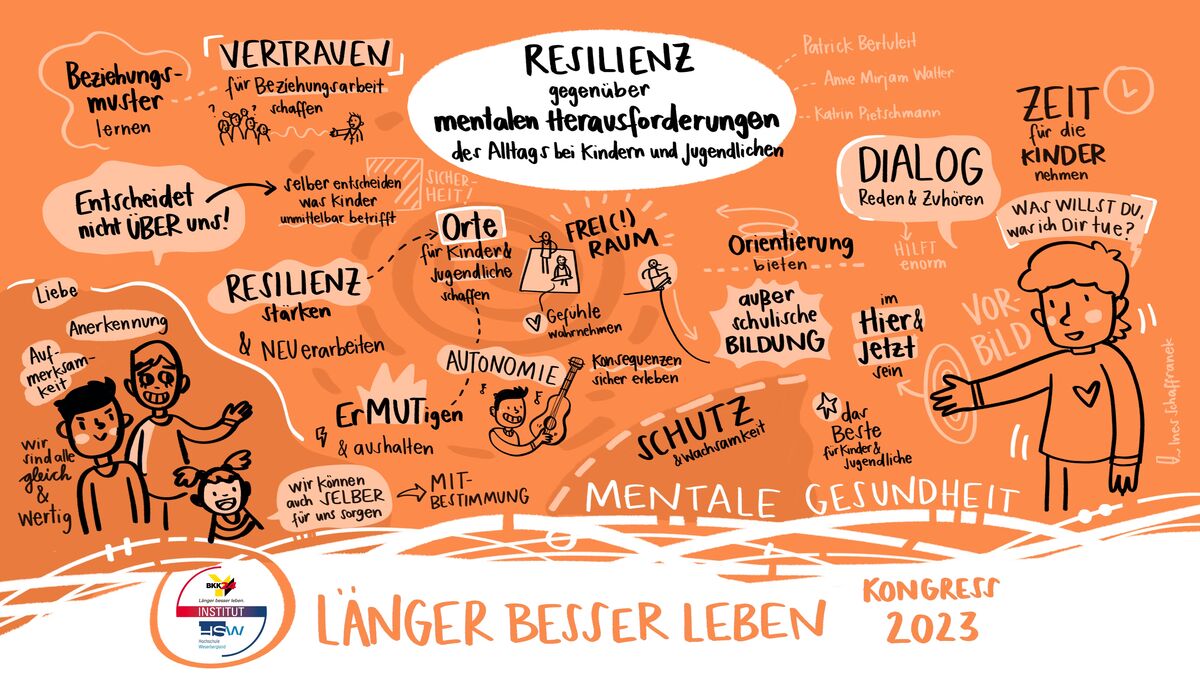 RESILIENZ
gegenüber
mentalen Herausforderungen
des Alltags bei Kindern und Jugendlichen
Patrick Bertuleit
Anne Mirjam Walter
Katrin Pietschmann
Beziehungs-
muster
lernen
VERTRAUEN
für Beziehungsarbeit
schaffen
? ? ?
Entscheidet
nicht ÜBER uns!
selber entscheiden
was Kinder
unmittelbar betrifft
SICHER-
HEIT!
RESILIENZ
stärken
& NEU erarbeiten
Orte
für Kinder &
Jugendliche
schaffen
FREI(!)
RAUM
Gefühle
wahrnehmen
Orientierung
bieten
DIALOG
Reden & Zuhören
HILFT
enorm
ZEIT
für die
KINDER
nehmen
WAS WILLST DU,
was ich Dir tue?
Liebe
Anerkennung
Auf-
merksam-
keit
wir
sind alle
gleich
&
wertig
ErMUTigen
& aushalten
AUTONOMIE
Konsequenzen
sicher erleben
außer
schulische
BILDUNG
im
Hier &
Jetzt
sein
VOR-
BILD
Ines Schaffranek
wir können
auch SELBER
für uns sorgen
MIT-
BESTIMMUNG
SCHUTZ
& Wachsamkeit
das
Beste
für Kinder &
Jugendliche
MENTALE GESUNDHEIT
BKK
Länger besser leben.
INSTITUT
HSW
Hochschule
Weserbergland
LÄNGER BESSER LEBEN
KONGRESS
2023